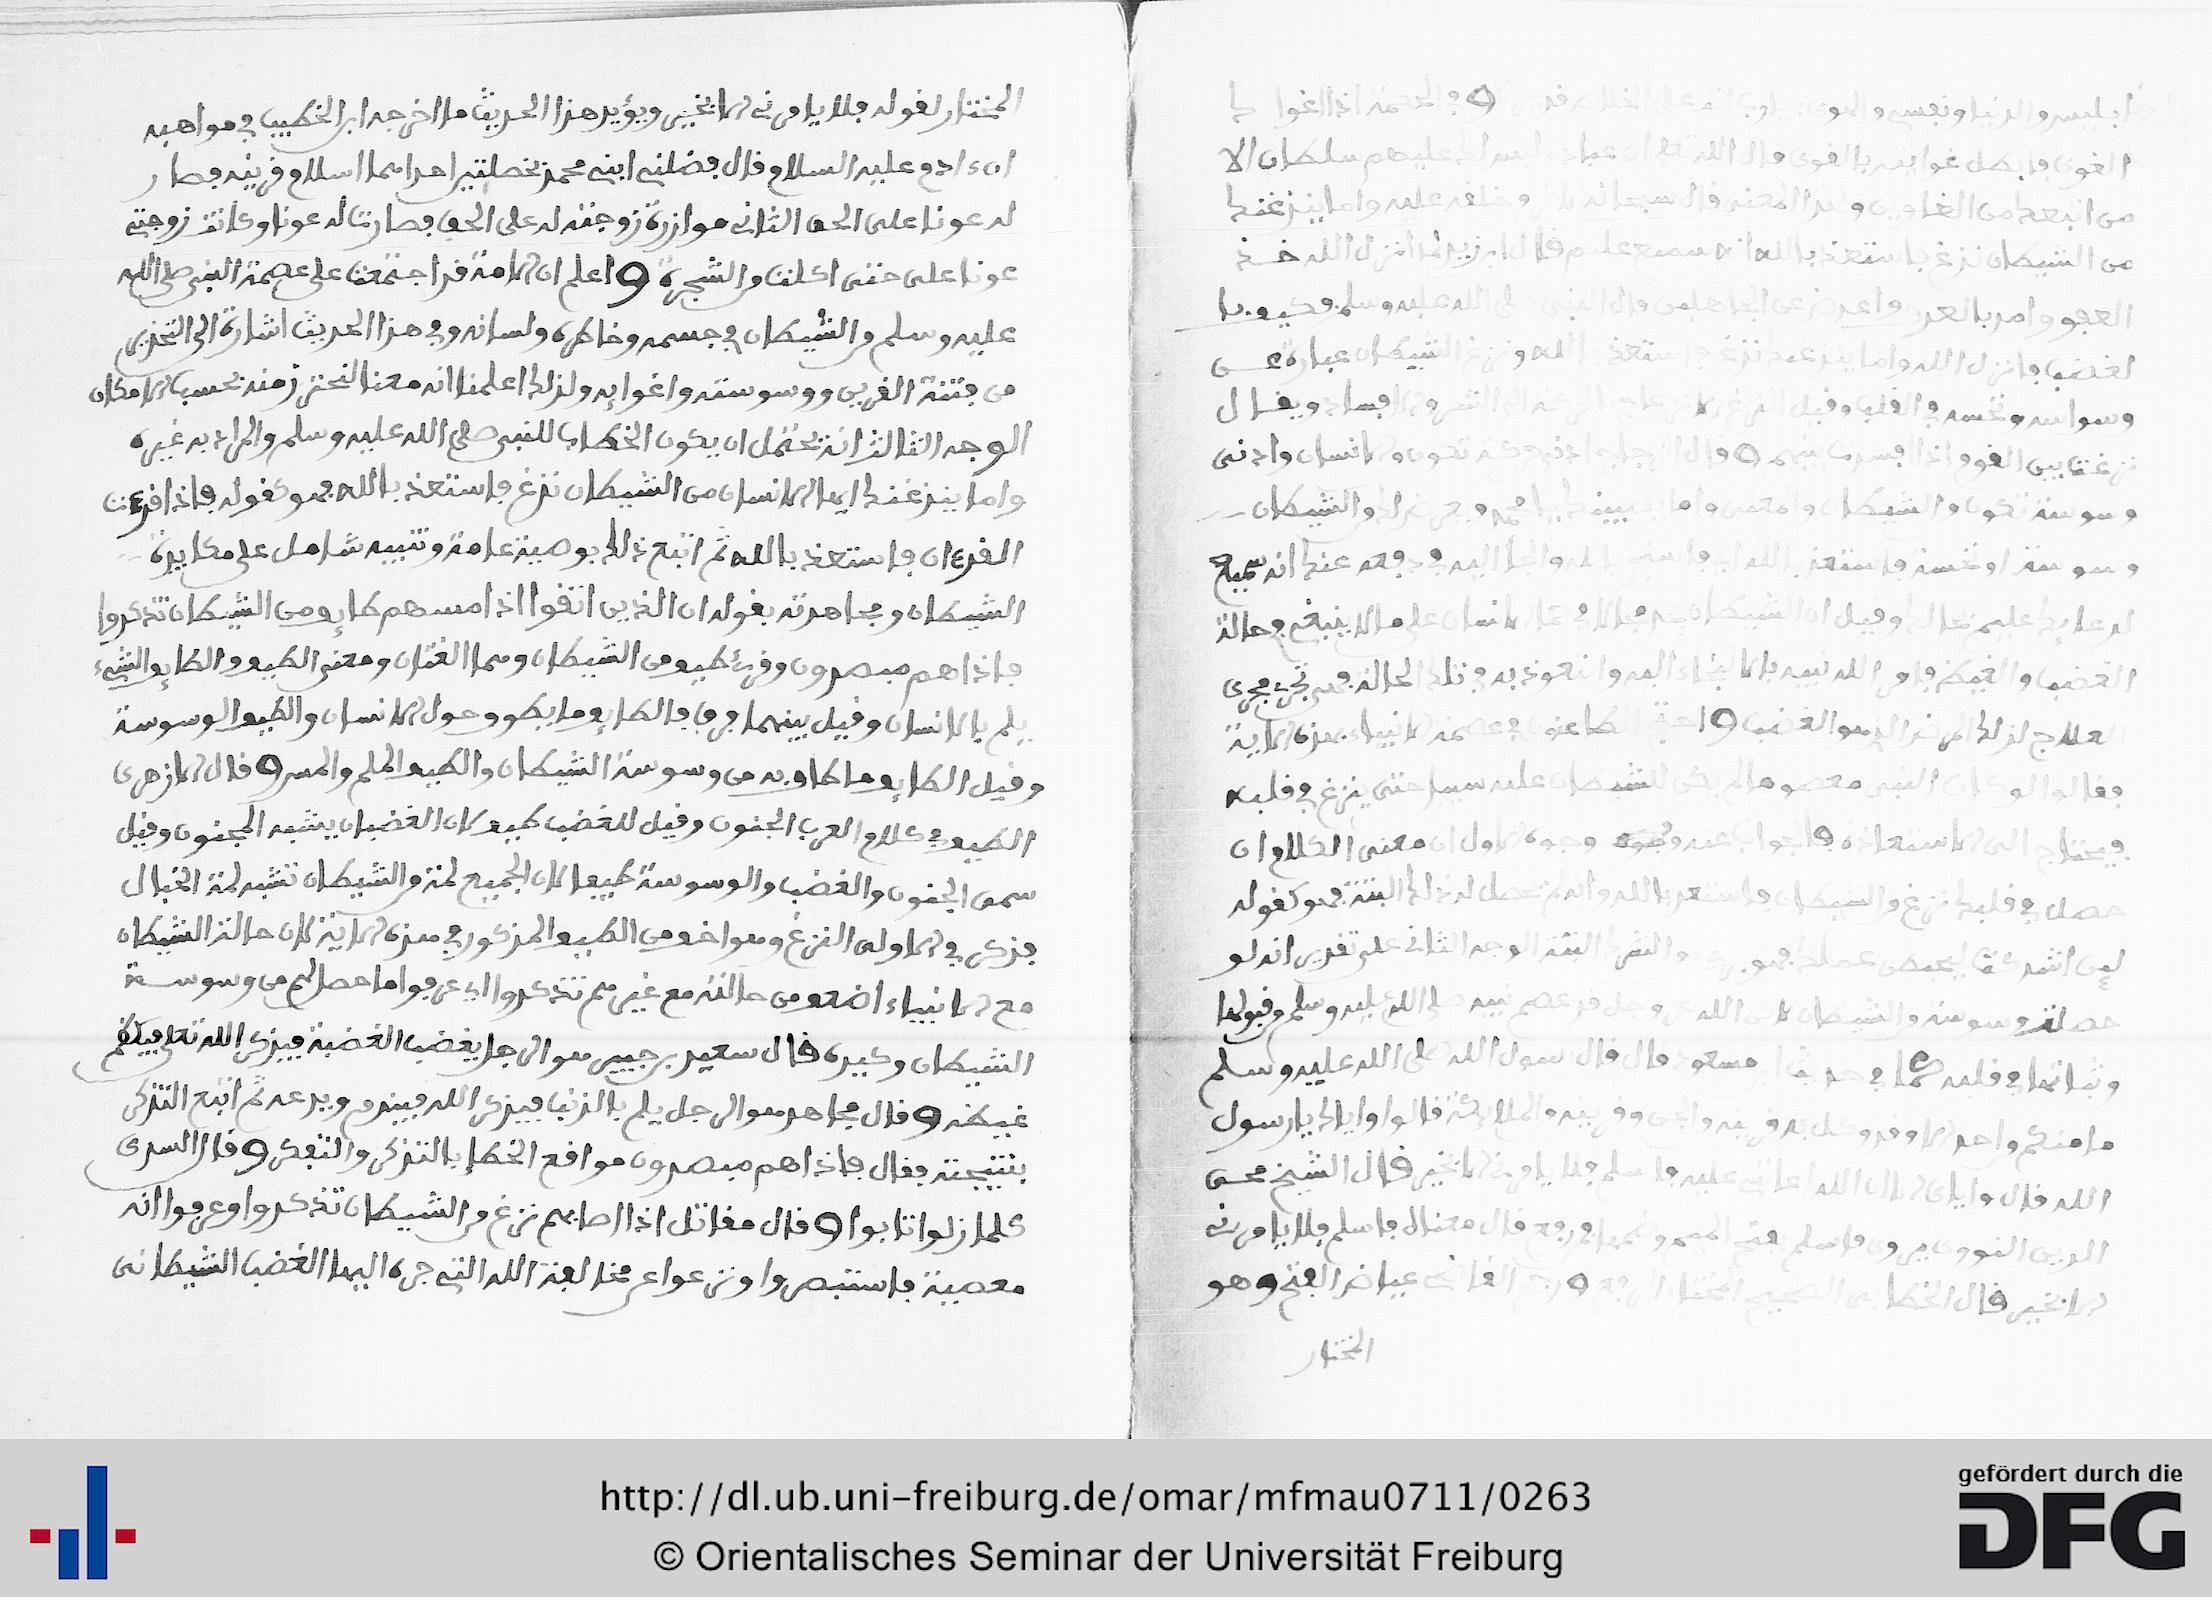 ابليس والدنيا ونفسي والهوى
الغوى فابطل غوايته بالغوى قال الله تعلى ان عبادي ليس لك عليهم سلطان الا
من اتبعك من الغاوين ولهذا المعنى قال سبحانه وخلفه عليه واما ينزغنك
من الشيطان نزغ فاستعذ بالله انه سميع عليم قال ابن زيد لما انزل الله خذ
العفو وامر بالعرف واعرض عن الجاهلين قال النبي صلى الله عليه وسلم فكيف يا
لغضب فانزل الله واما ينزغنك نزغ فاستعذ بالله ونزغ الشيطان عبارة عن
وساوسه ونخسه في القلب وقيل النزغ الشر والافساد ويقال
نزغت بين القوم اذا افسدت بينهم وقال الزجاج ادنى حركة تكون من الانسان وادنى
وسوسة تكون من الشيطان والمعنى واما يصيبنك يا محمد ويعرض لك من الشيطان
وسوسة او نخسة فاستعذ بالله اي فاستجر بالله والجأ اليه في دفعه عنك انه سميع
لدعايك عليم بحالك وقيل ان الشيطان يجد مجالا في حمل الانسان على ما لا ينبغي في حالة
الغضب والغيظ فامر الله نبيه بالالتجاء اليه والتعوذ به في تلك الحالة فهي تجري مجرى
العلاج لذلك المرض الذي هو الغضب واحتج الطاعنون في عصمة الانبياء بهذه الاية
فقالوا لو كان النبي معصوما لم يكن للشيطان عليه سبيل حتى ينزغ في قلبه
فيحتاج الى الاستعاذة والجواب عنه من وجوه الاول ان معنى الكلام ان
حصل في قلبك نزغ من الشيطان فاستعذ بالله وانه لم يحصل له ذلك البتة فهو كقوله
لين اشركت ليحبطن عملك فهو بريء من الشرك البتة الوجه الثاني على تقدير انه لو
حصلت وسوسة من الشيطان لكن الله عز وجل قد عصم نبيه صلى الله عليه وسلم من قبولها
وثباتها في قلبه كما في حديث ابن مسعود قال قال رسول الله صلى الله عليه وسلم
ما منكم واحد الا وقد وكل به قرينه من الجن وقرينه من الملايكة قالوا واياك يا رسول
الله قال واياي الا ان الله اعانني عليه فاسلم فلا يامرني الا بخير قال الشيخ محيي
الدين النووي يروى فاسلم بفتح الميم وضمها فمن رفع قال معناه فاسلم فلا يامرني
الا بخير قال الخطابي الصحيح المختار الرفع ورجح القاضي عياض الفتح وهو
المختار
المختار لقوله فلا يامرني الا بخير ويؤيد هذا الحديث ما اخرجه ابن الخطيب في مواهبه
ان ءادم عليه السلام قال فضلني ابني محمد بخصلتين احداهما اسلام قرينه فصار
له عونا على الحق الثاني موازرة زوجته له على الحق فصارت له عونا وكانت زوجتي
عونا علي حتى اكلت من الشجرة واعلم ان الامة قد اجتمعت على عصمة النبي صلى الله
عليه وسلم من الشيطان في جسمه وخاطره ولسانه وفي هذا الحديث اشارة الى التحذير
من فتنة القرين ووسوسته واغوايه ولذلك اعلمنا انه معنا لنحترز منه بحسب الامكان
الوجه الثالث انه يحتمل ان يكون الخطاب للنبي صلى الله عليه وسلم والمراد به غيره
واما ينزغنك ايها الانسان من الشيطان نزغ فاستعذ بالله فهو كقوله فاذا قرءت
القرءان فاستعذ بالله ثم اتبع ذلك بوصية عامة وتنبيه شامل على مكايدة
الشيطان ومجاهدته بقوله ان الذين اتقوا اذا مسهم طايف من الشيطان تذكروا
فاذا هم مبصرون وقرئ طيف من الشيطان وهما لغتان ومعنى الطيف والطايف الشيء
يلم بالانسان وقيل بينهما فرق فالطايف ما يطوف حول الانسان والطيف الوسوسة
وقيل الطايف ما طاف به من وسوسة الشيطان والطيف الملم والمس وقال الازهري
الطيف في كلام العرب الجنون وقيل للغضب طيف لان الغضبان يشبه المجنون وقيل
سمى الجنون والغضب والوسوسة طيفا لان الجميع لمة من الشيطان تشبه لمة الخيال
فذكر في الاولى النزغ وهو اخف من الطيف المذكور في هذه الاية لان حالة الشيطان
مع الانبياء اضعف من حالته مع غيرهم تذكروا اي عرفوا ما حصل لهم من وسوسة
الشيطان وكيده قال سعيد بن جبير هو الرجل يغضب الغضبة فيذكر الله تعلى فيكظم
غيظه وقال مجاهد هو الرجل يلم بالذنب فيذكر الله فيندم ويدعه ثم اتبع التذكر
بنتيجته فقال فاذا هم مبصرون مواقع الخطإ بالتذكر والتفكر وقال السدي
كلما زلوا تابوا وقال مقاتل اذا اصابهم نزغ من الشيطان تذكروا وعرفوا انه
معصية فاستبصروا ونزعوا عن مخالفة الله التي جره اليها الغضب الشيطاني
http://dl.ub.uni-freiburg.de/omar/mfmau0711/0263
© Orientalisches Seminar der Universität Freiburg
gefördert durch die
DFG